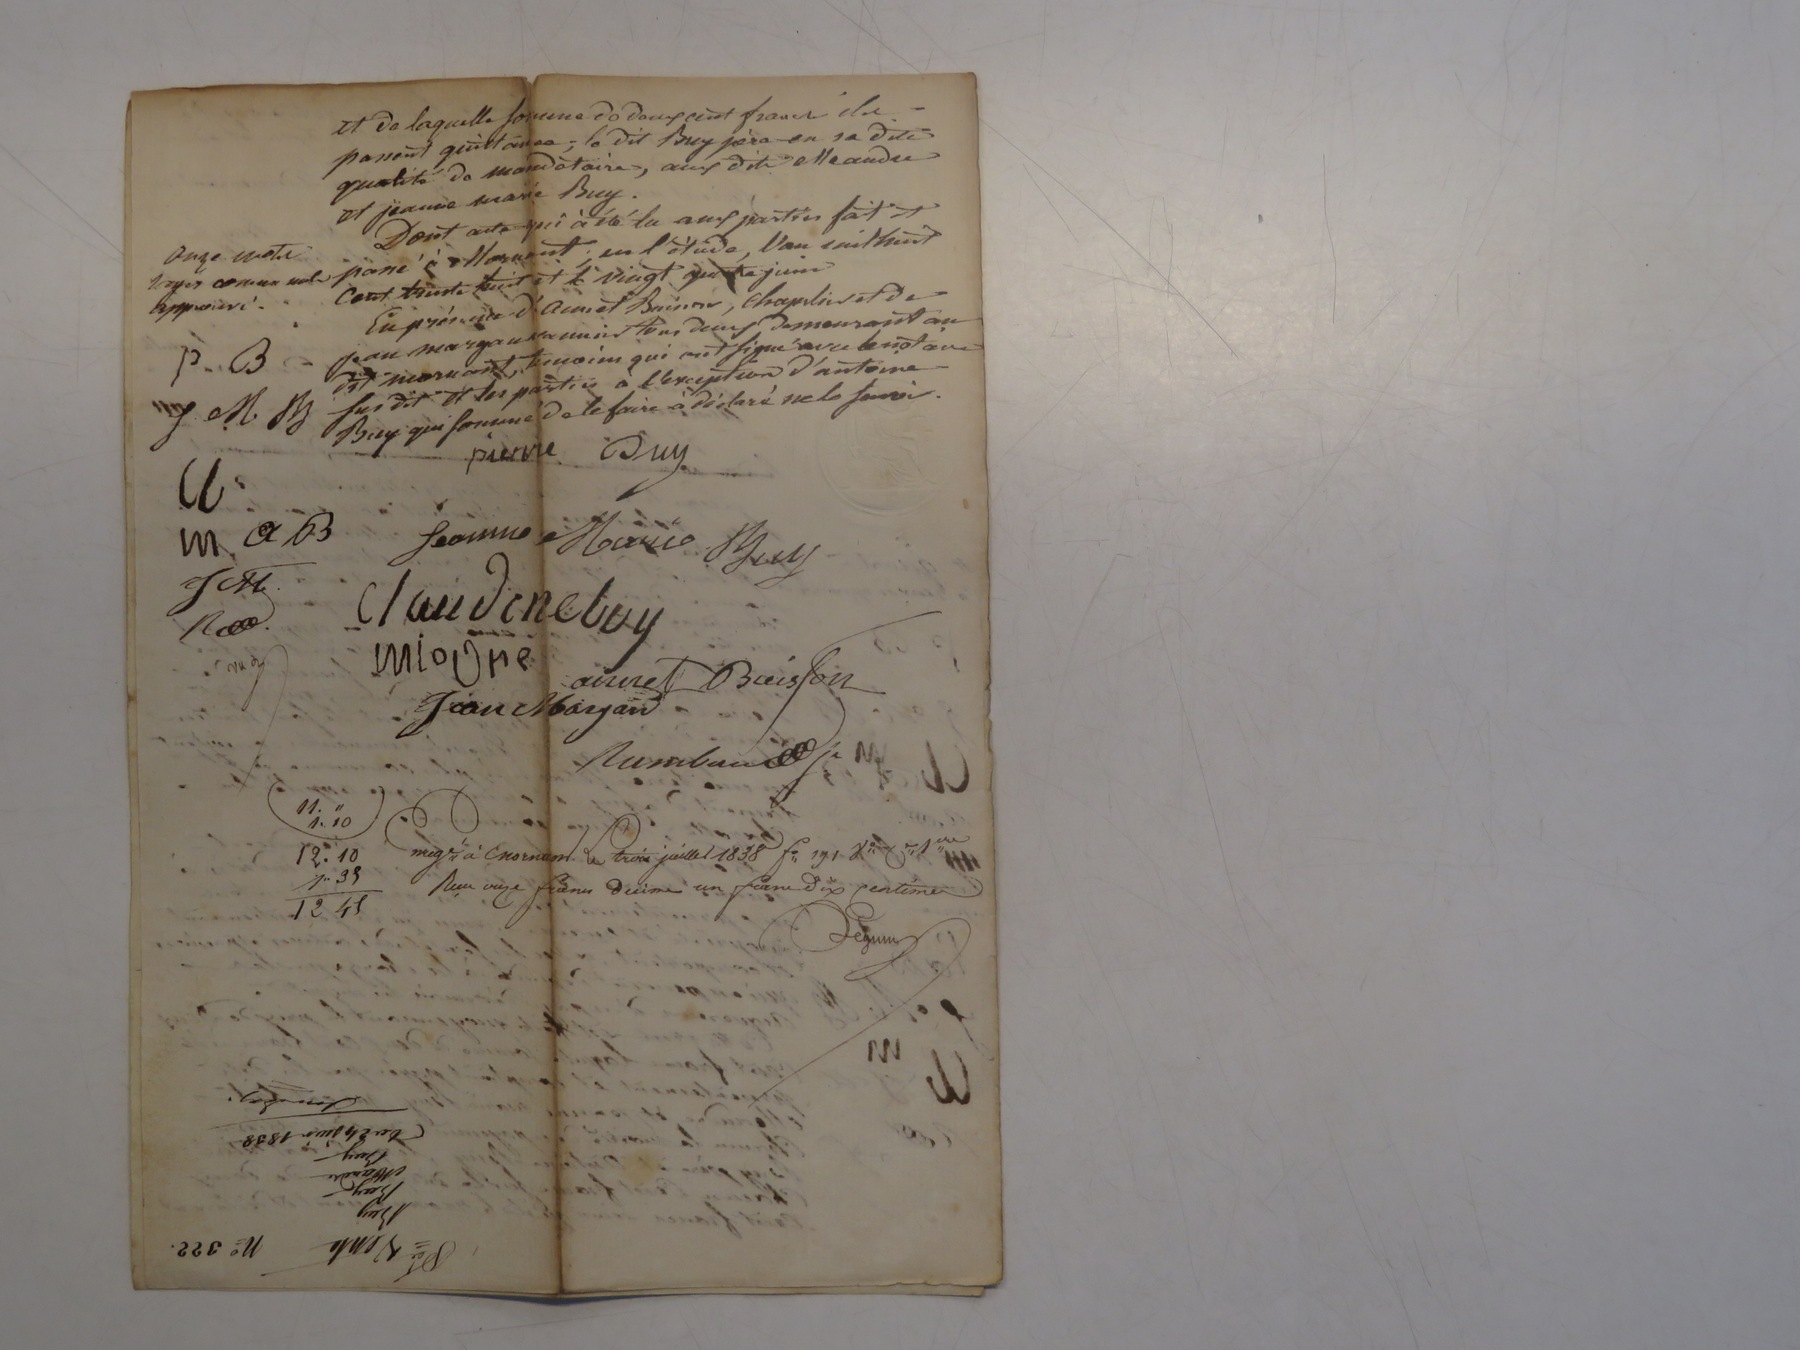 et de laquelle somme de deux cent francs ils
passent quittance, le dit Buy père en sa dite
qualité de mandataire, aux dits Meandre
et jeanne marie Buy.
Dont acte qui à été lu aux parties fait et
passé à Mornant, en l'étude, l'an mil huit
cent trente huit et le vingt quatre juin
En présence d'aimet Buisson, chapelier et de
jean margand vannier tous deux demeurant au
dit mornant, temoins qui ont signé avec le notaire
sus dit et les parties à l'exception d'antoine
Buy qui sommé de le faire à déclaré ne le savoir.
onze mots
rayés comme nuls
approuvé.
P. B
J M B
Cb
m a B
J M
R
pierre Buy
Jeanne Marie Buy
Claudinebuy
miogne
aimet Buisson
Jean Margand
Rambaud
11. "
1. 10
12. 10
1. 35
13 45
à Mornant le trois juillet 1838 f°
Reçu onze francs décime un franc dix centimes
N° 322.
Vente
Buy
Buy
Meandre
Buy
Du 24 juin 1838